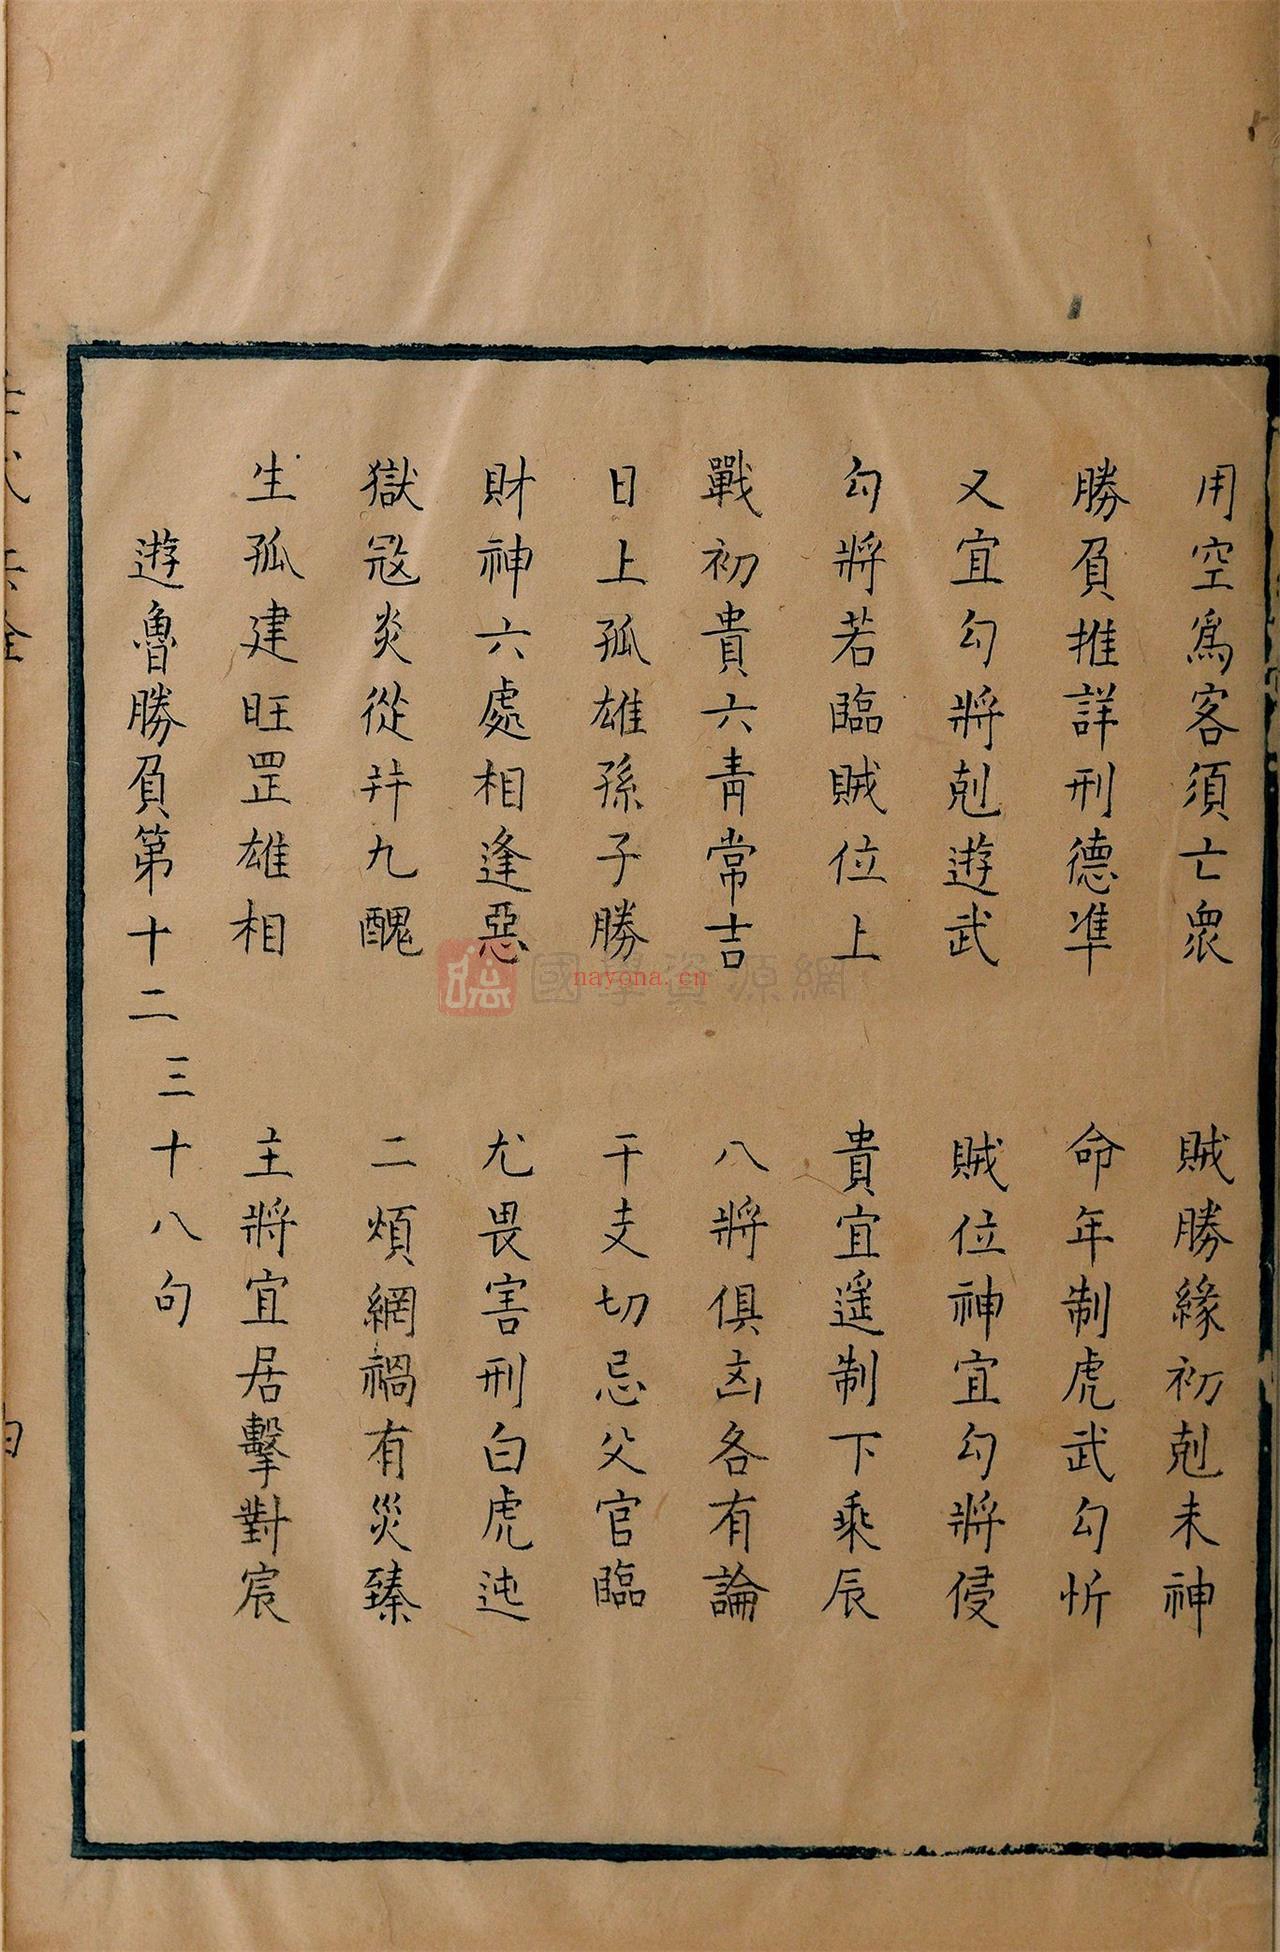 用空爲客須亡衆　賊勝緣初剋未神
勝負推詳刑德準　命年制虎武勾忻
又宜勾將剋遊武　賊位神宜勾將侵
勾將若臨賊位上　貴宜遥制下乘辰
戰初貴六青常吉　八將俱凶各有論
日上孤雄孫子勝　干支切忌父官臨
財神六處相逢惡　尤畏害刑白虎迍
獄寇炎從井九醜　二煩網禍有災臻
生孤建旺罡雄相　主將宜居擊對宸
遊魯勝負第十二　三十八句
國學資源網
nayona.cn